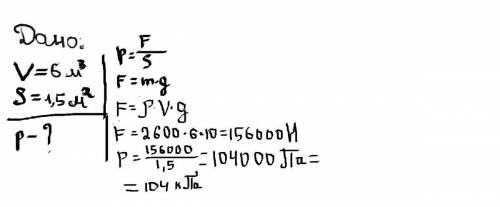 Дано:
V=6 м³
S=1,5 м²
p-?
p=F/S
F=m·g
F=ρ·V·g
F=2600·6·10=156000Н
P=156000/1,5=104000Па=
=104 кПа